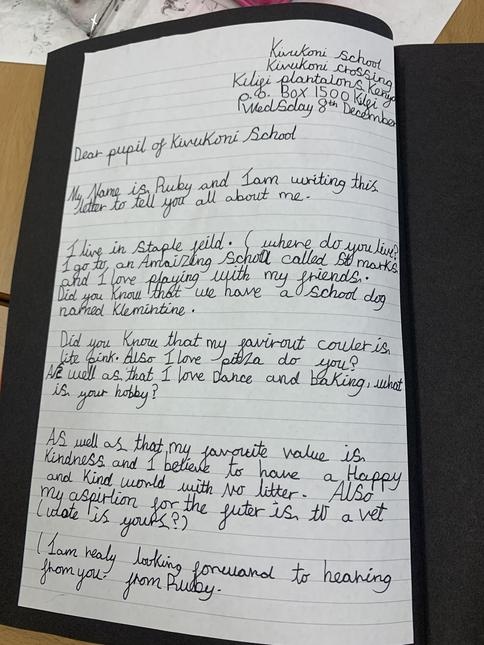 Kivukoni School
Kivukoni crossing
Kiligi plantaions Kenya
P.O. Box 1500 Kilgi
Wedsday 8th December
Dear pupil of Kivukoni School
My Name is Ruby and Iam writing this
letter to tell you all about me.
I live in Staple feild. (where do you live?
I go to, an Amaizing School called St marks
and I love playing with my friends.
Did you know that we have a School dog
named Klemintine.
Did you know that my favirout couler is
lite pink. Also I love pitza do you?
As well as that I love Dance and baking, what
is your hobby?
As well as that my favouite value is
Kindness and I believe to have a Happy
and Kind world with No litter. Also
my aspirtion for the futer is to a vet
(wate is yours?)
(Iam realy looking forwand to heaning
from you. from Ruby.